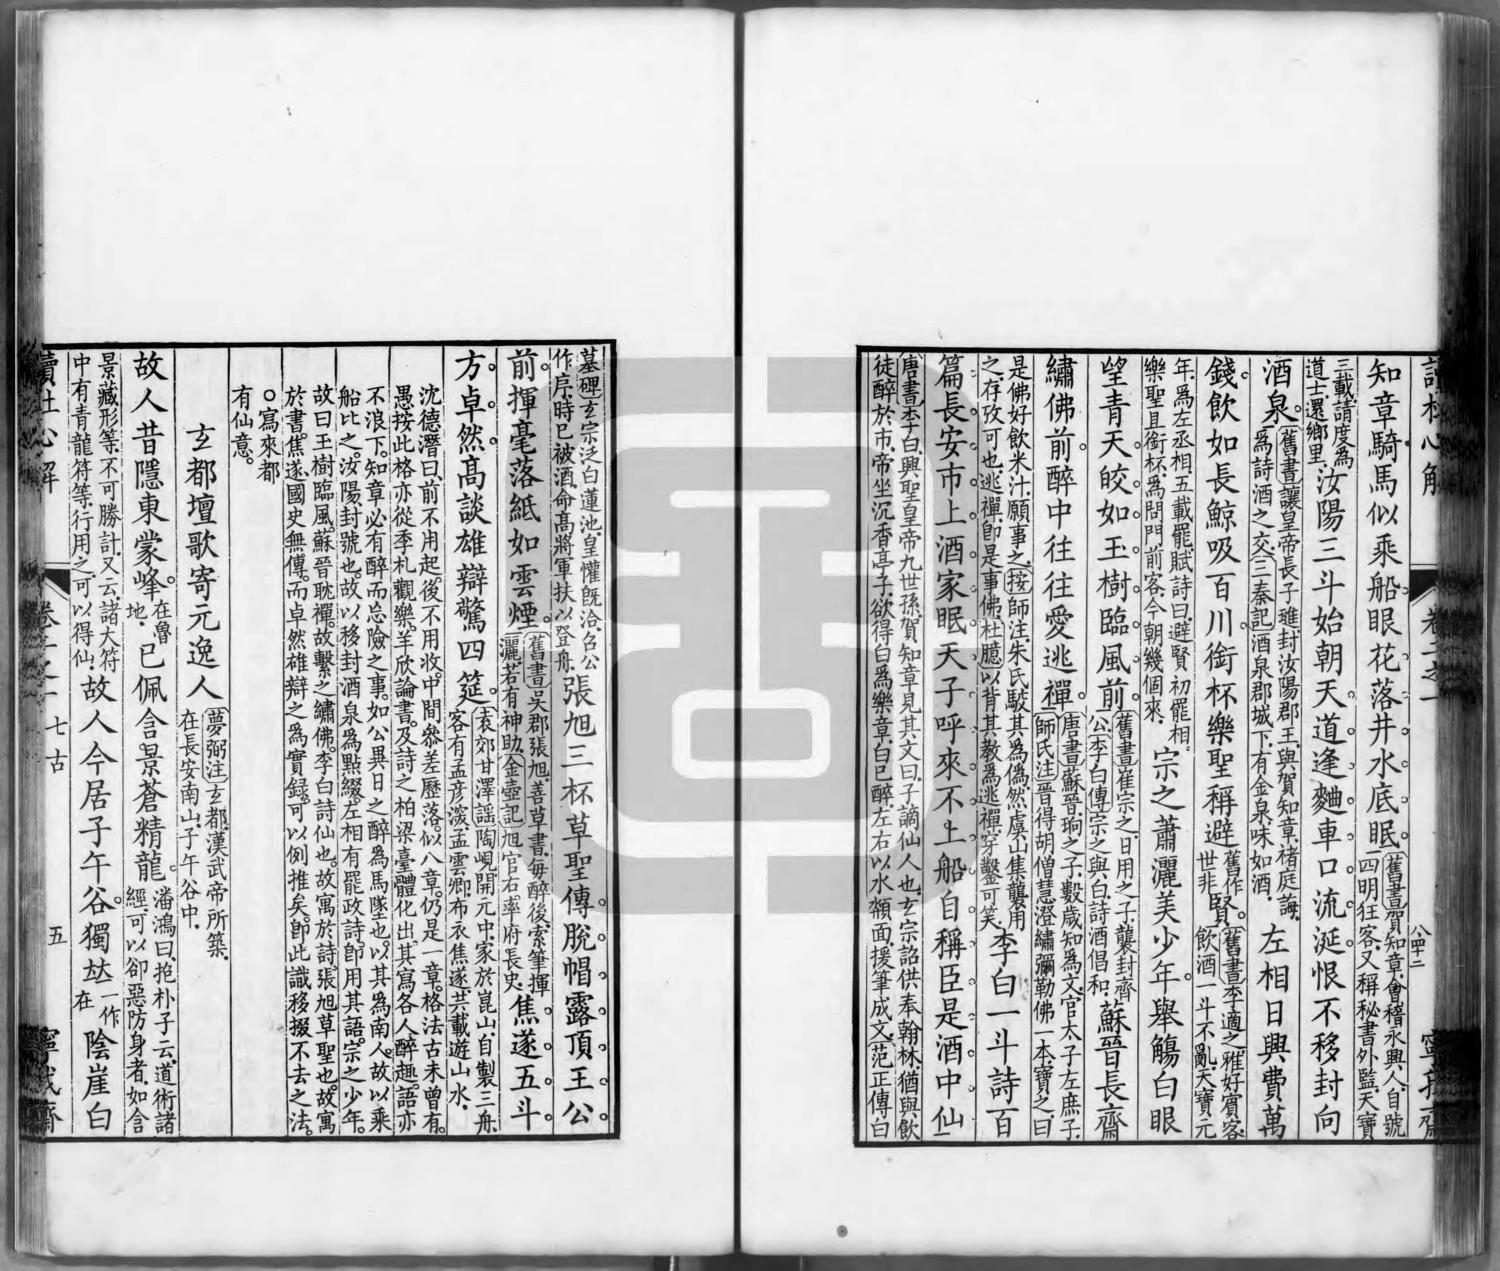 知章騎馬似乘船眼花落井水底眠舊書賀知章會稽永興人自號
四明狂客又稱秘書外監天寶
三載請度為
道士還鄉里汝陽三斗始朝天道逢麯車口流涎恨不移封向
酒泉舊書讓皇帝長子璡封汝陽郡王與賀知章褚庭誨
為詩酒之交三秦記酒泉郡城下有金泉味如酒左相日興費萬
錢飲如長鯨吸百川銜杯樂聖稱避舊作
世非賢舊書李適之雅好賓客
飲酒一斗不亂天寶元
年為左丞相五載罷賦詩曰避賢初罷相
樂聖且銜杯為問門前客今朝幾個來宗之蕭灑美少年舉觴白眼
望青天皎如玉樹臨風前舊書崔宗之日用之子襲封齊
公李白傳宗之與白詩酒倡和蘇晉長齋
繡佛前醉中往往愛逃禪唐書蘇晉珦之子數歲知為文官太子左庶子
師氏注晉得胡僧慧澄繡彌勒佛一本寶之曰
是佛好飲米汁願事之按師注朱氏駁其為偽然虞山集襲用
之存攷可也逃禪卽是事佛杜臆以背其教為逃禪穿鑿可笑李白一斗詩百
篇長安市上酒家眠天子呼來不上船自稱臣是酒中仙
唐書李白興聖皇帝九世孫賀知章見其文曰子謫仙人也玄宗詔供奉翰林猶與飲
徒醉於市帝坐沉香亭子欲得白為樂章白已醉左右以水頮面援筆成文范正傳白
墓碑玄宗泛白蓮池皇懽旣洽召公
作序時已被酒命高將軍扶以登舟張旭三杯草聖傳脫帽露頂王公
前揮毫落紙如雲煙舊書吳郡張旭善草書每醉後索筆揮
灑若有神助金壺記旭官右率府長史焦遂五斗
方卓然高談雄辯驚四筵袁郊甘澤謠陶峴開元中家於崑山自製三舟
客有孟彥深孟雲卿布衣焦遂共載遊山水
沈德潛曰前不用起後不用收中間參差歷落似八章仍是一章格法古未曾有
愚按此格亦從季札觀樂羊欣論書及詩之柏梁臺體化出其寫各人醉趣語亦
不浪下知章必有醉而忘險之事如公異日之醉為馬墜也以其為南人故以乘
船比之汝陽封號也故以移封酒泉為點綴左相有罷政詩卽用其語宗之少年
故曰玉樹臨風蘇晉耽禪故繫之繡佛李白詩仙也故寓於詩張旭草聖也故寓
於書焦遂國史無傳而卓然雄辯之為實錄可以例推矣卽此識移掇不去之法
○寫來都
有仙意
玄都壇歌寄元逸人夢弼注玄都漢武帝所築
在長安南山子午谷中
故人昔隱東蒙峰在魯
地已佩含景蒼精龍潘鴻曰抱朴子云道術諸
經可以卻惡防身者如含
景藏形等不可勝計又云諸大符
中有青龍符等行用之可以得仙故人今居子午谷獨𡘜一作
在陰崖白
七古
五